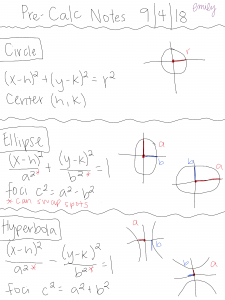 Pre-Calc Notes 9/4/18 Emily
Circle
r
(x-h)² + (y-k)² = r²
Center (h, k)
Ellipse
(x-h)²/a²* + (y-k)²/b²* = 1
a
b
b
a
foci c² = a² - b²
* can swap spots
Hyperbola
a
b
(x-h)²/a²* - (y-k)²/b²* = 1
foci c² = a² + b²
a